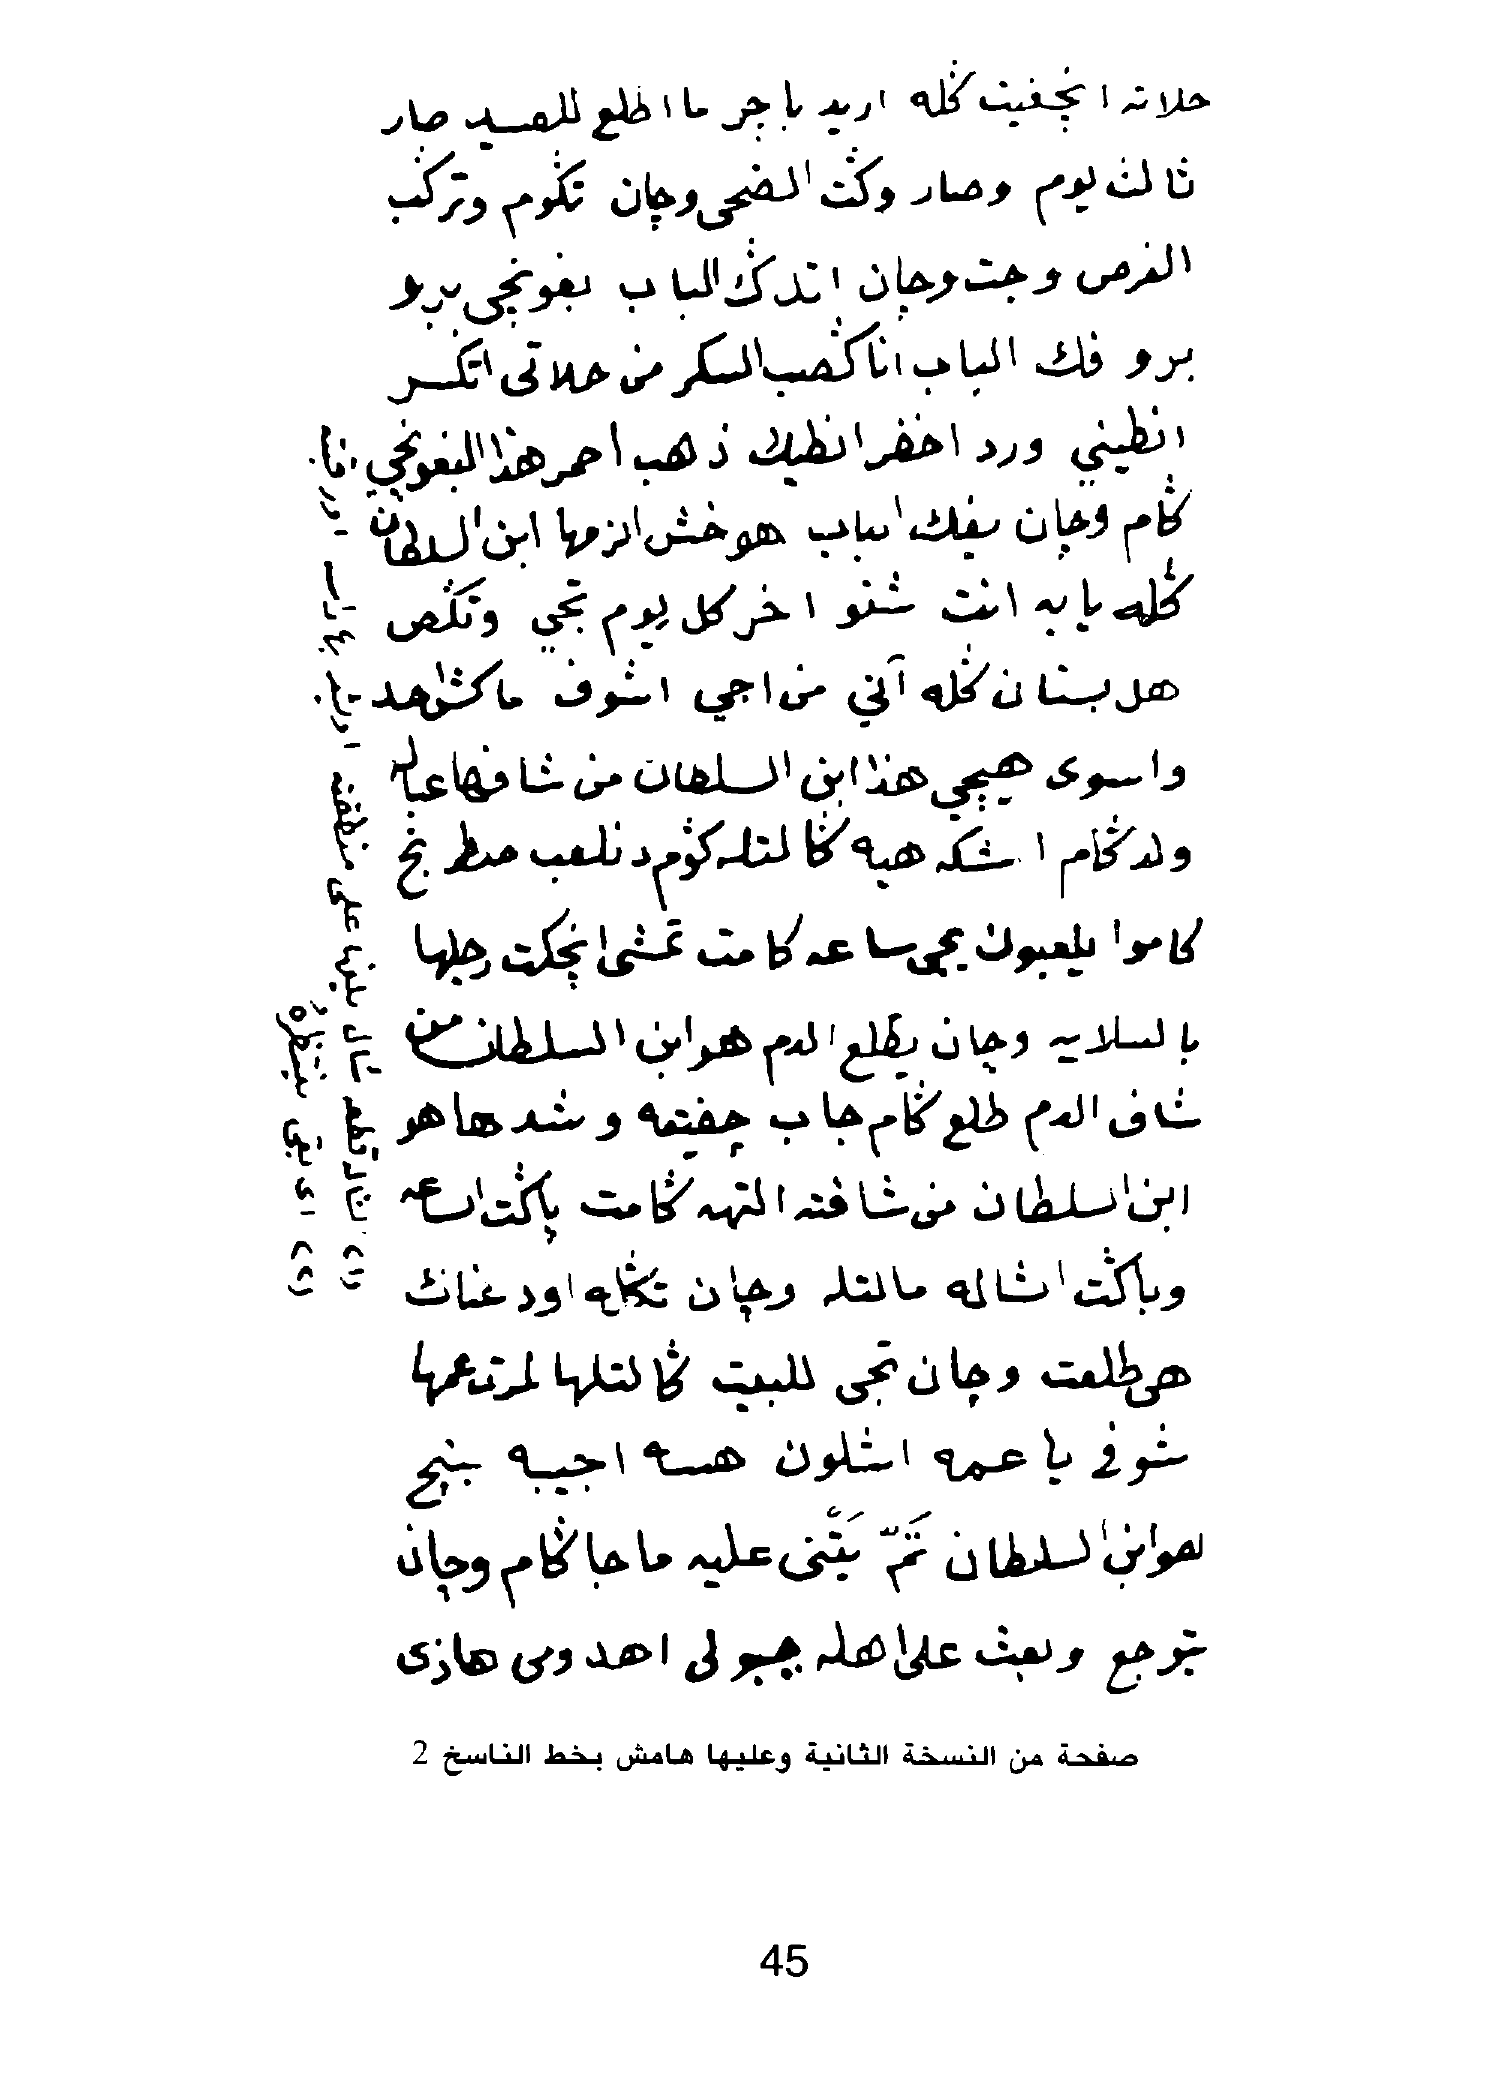 حلاته انچفيت ڭله اريد باچر ما اطلع للصيد صار
ثالث يوم وصار وڭت الضحى وچان تڭوم وترڭب
الفرص وجت وچان اتدڭ الباب بغونچى بربو
بربو فك الباب انا ڭصب السكر من حلاتى اتكسر
انطيني ورد اخضر انطيك ذهب احمر هذا البغونچي
ڭام وچان يفك الباب هو خش الزمها ابن السلطان
ڭله يابه انت شنو اخر كل يوم تجي وتڭص
هل بستان ڭله آني من اجي اشوف ماكش احد
واسوى هيچي هذا ابن السلطان من شافها عباله
ولد ڭام اشكه هيه ڭالتله ڭوم دنلعب صطرنج
كاموا يلعبون يجي ساعه كامت تمشى انچكت رجلها
بالسلايه وچان يطلع الدم هو ابن السلطان من
شاف الدم طلع ڭام جاب چفيته وشدها هو
ابن السلطان من شافته التهه ڭامت باڭت الساعه
وباڭت اشاله مالتله وچان تڭله اودعناك
هى طلعت وچان تجى للبيت ڭالتلها لمرت عمها
شوفي يا عمه اشلون هسه اجيبه بنيج
هو ابن السلطان تمّ يتنى عليه ما جا ڭام وچان
يتوجع وبعث على اهله جيبولى اهدومى هاذى
(١) اشاله قطعه شال يلبنها على منطقته
(٢) اى يبقى ينتظره
صفحة من النسخة الثانية وعليها هامش بخط الناسخ 2
45